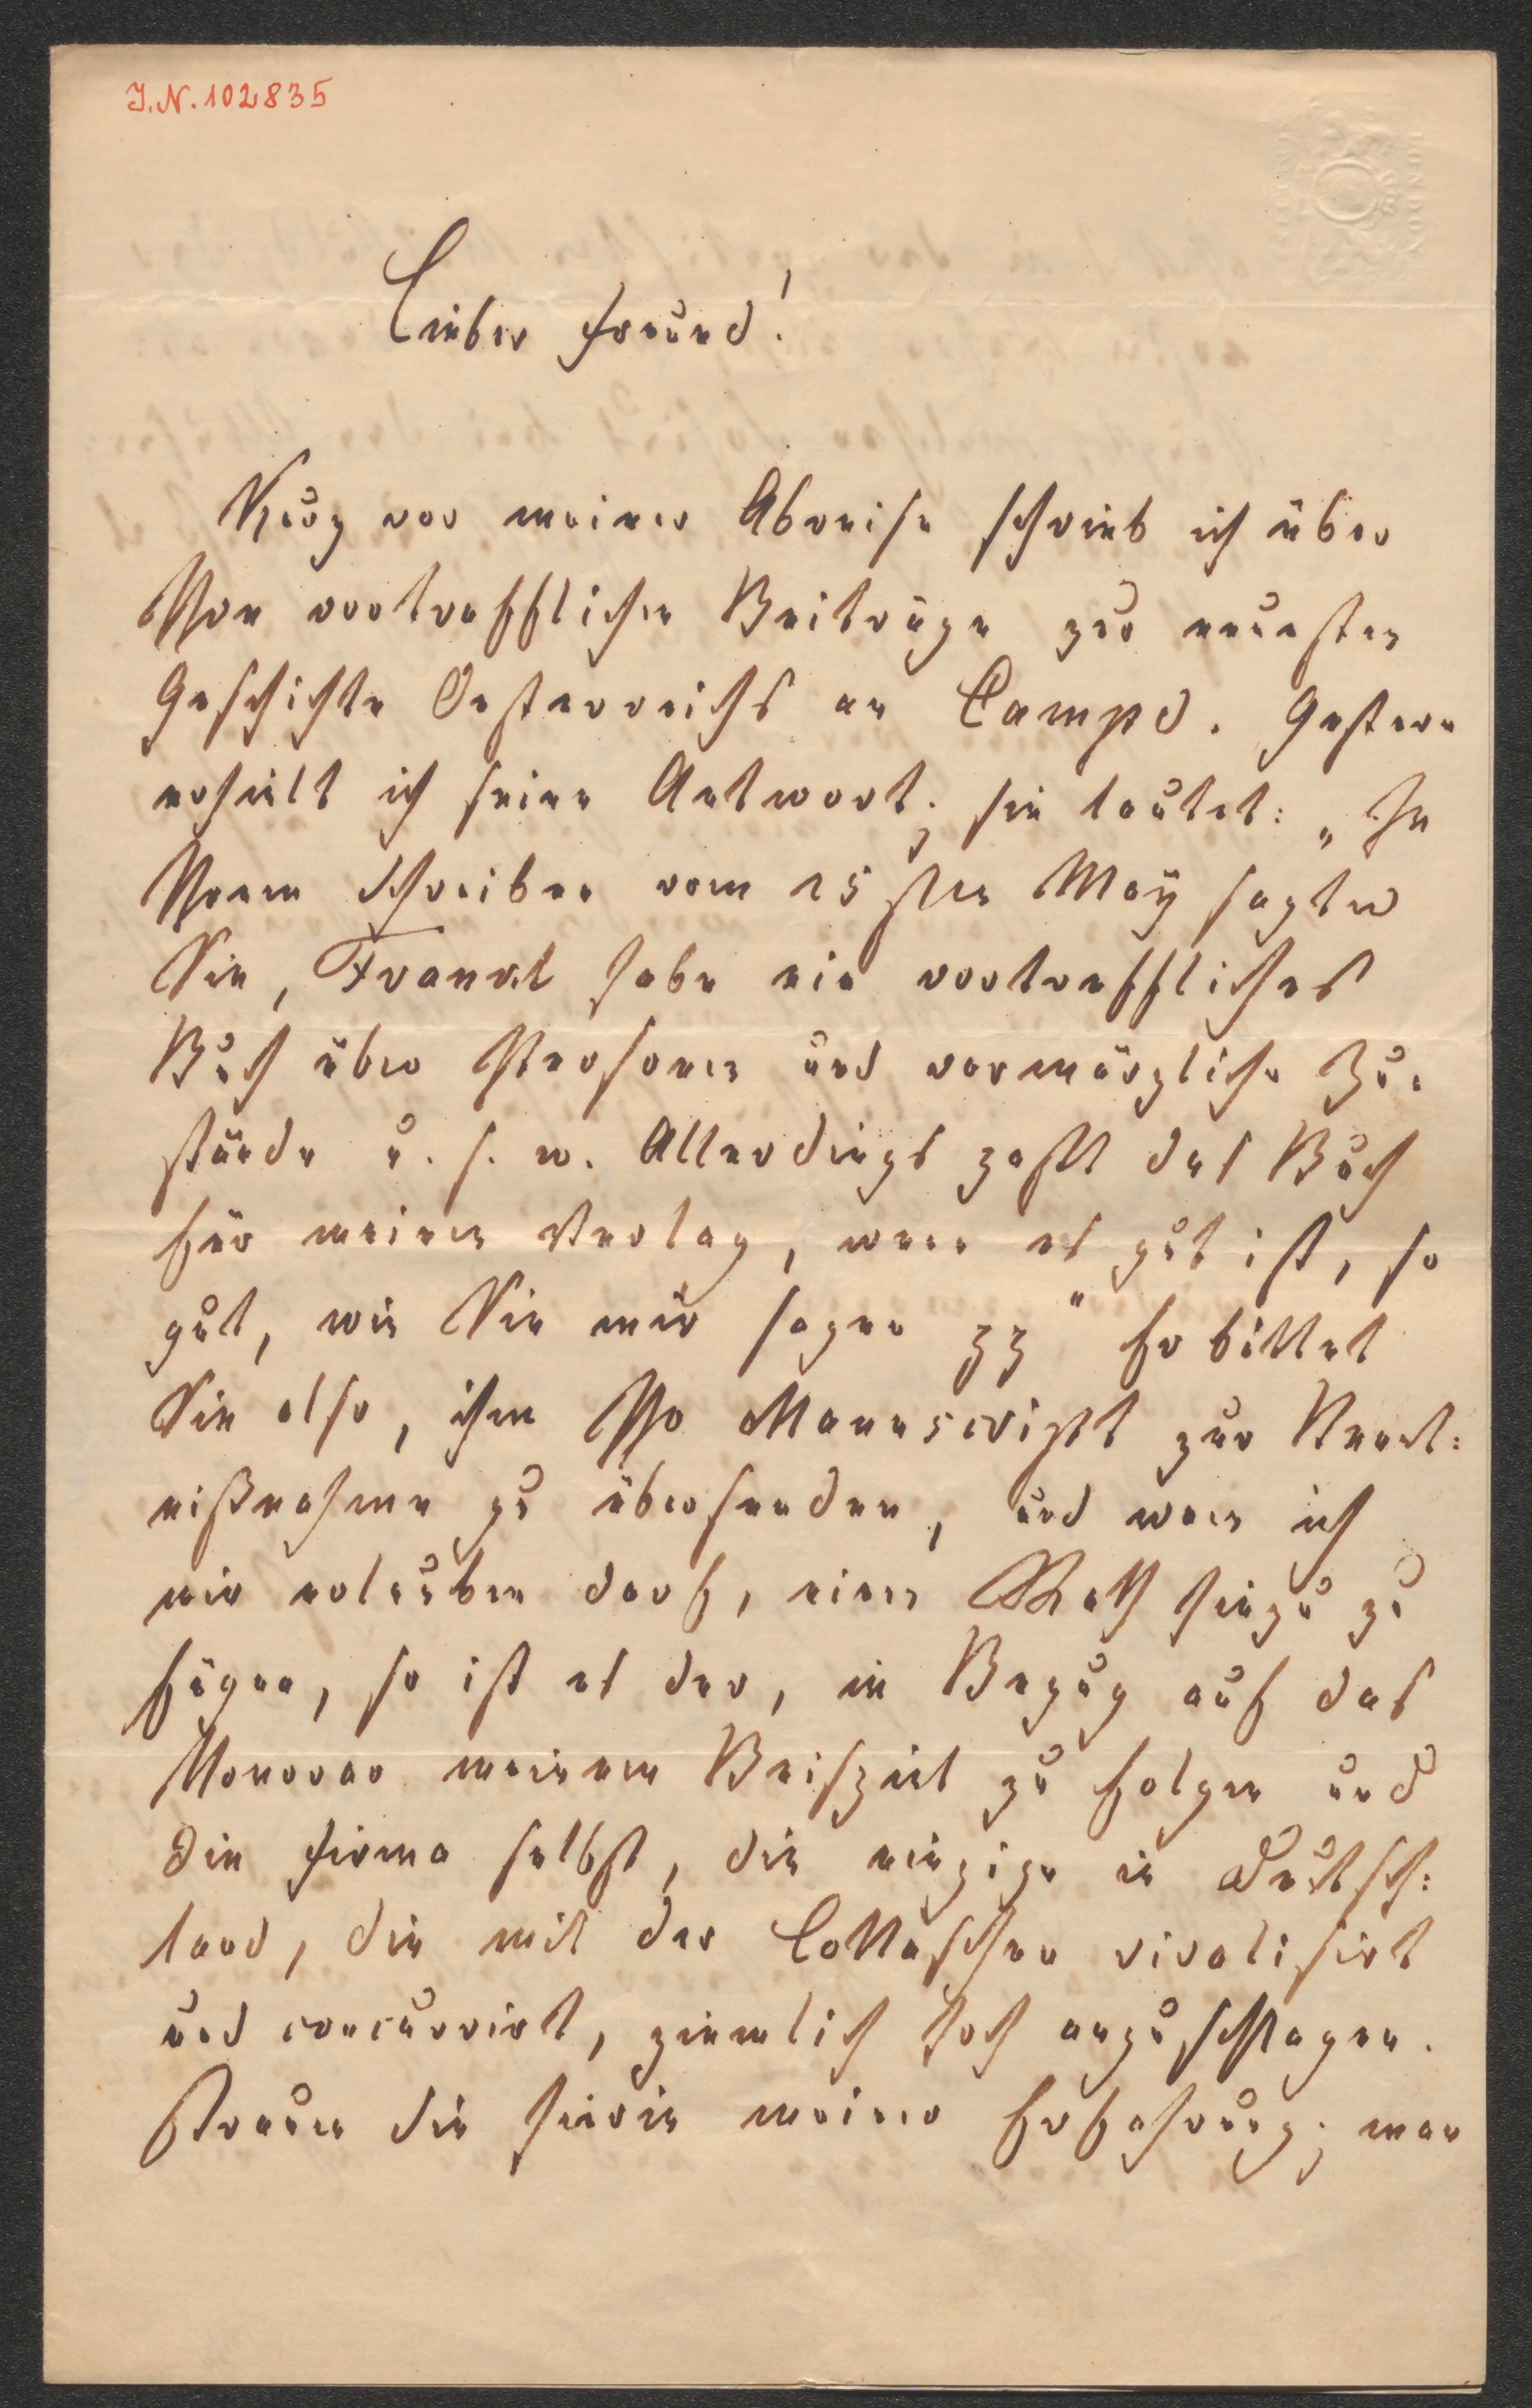 J.N. 102835
Lieber Freund!
Kurz vor meiner Abreise schrieb ich über
Ihre vortrefflichen Beiträge zur neuesten
Geschichte Oesterreichs an Campe. Gestern
erhielt ich seine Antwort; sie lautet: „In
Ihrem Schreiben vom 15sten May sagten
Sie, Frankl habe ein vortreffliches
Buch über Personen und vormärzliche Zu:
stände u. s. w. Allerdings paßt das Buch
für meinen Verlag, wenn es gut ist, so
gut, wie Sie mir sagen pp“ Er bittet
Sie also, ihm Ihr Manuscript zur Kennt:
nißnahme zu übersenden, und wenn ich
mir erlauben darf, einen Rath hinzu zu
fügen, so ist es der, in Bezug auf das
Honorar meinem Beispiel zu folgen und
die Firma selbst, die einzige in Deutsch:
land, die mit der Cottaschen rivalisirt
und concurrirt, ziemlich hoch anzuschlagen.
Trauen Sie hierin meiner Erfahrung; man